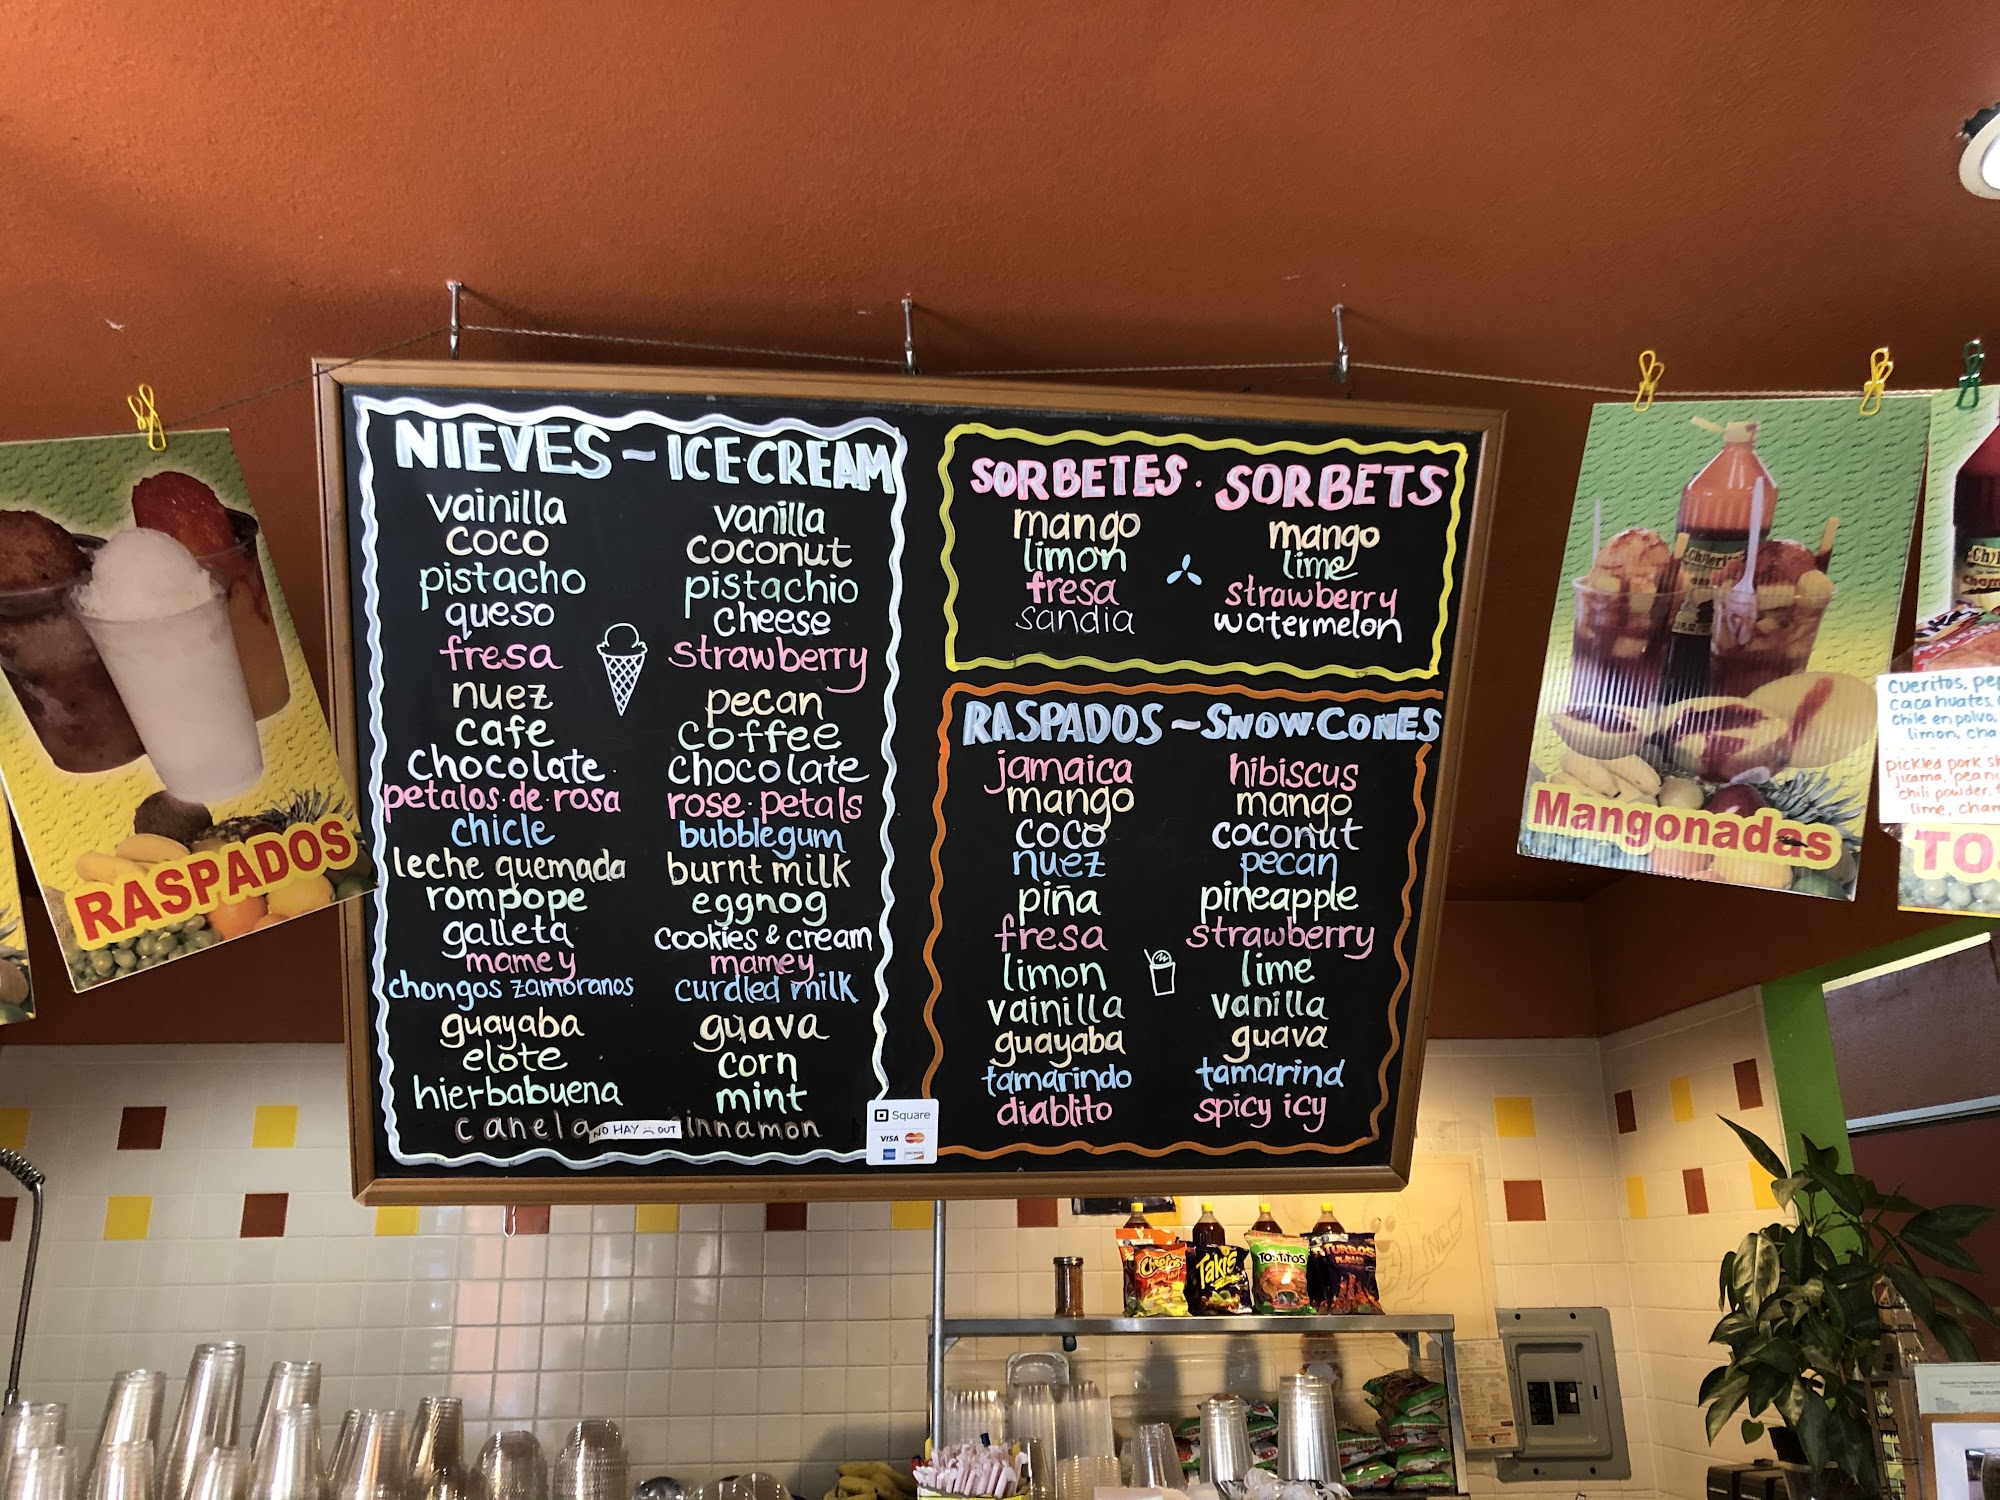 NIEVES ~ ICE·CREAM
vainilla vanilla
coco coconut
pistacho pistachio
queso cheese
fresa strawberry
nuez pecan
cafe coffee
chocolate chocolate
petalos·de·rosa rose·petals
chicle bubblegum
leche quemada burnt milk
rompope eggnog
galleta cookies & cream
mamey mamey
chongos zamoranos curdled milk
guayaba guava
elote corn
hierbabuena mint
canela innamon
NO HAY OUT
Square
VISA
SORBETES · SORBETS
mango mango
limon lime
fresa strawberry
sandia watermelon
RASPADOS ~ SNOW·CONES
jamaica hibiscus
mango mango
coco coconut
nuez pecan
piña pineapple
fresa strawberry
limon lime
vainilla vanilla
guayaba guava
tamarindo tamarind
diablito spicy icy
RASPADOS
Mangonadas
cueritos, pe
cacahuates,
chile en polvo,
limon, cha
pickled pork s
jicama, peanu
chili powder,
lime, cham
TO
Cheetos
Takis
TOSTITOS